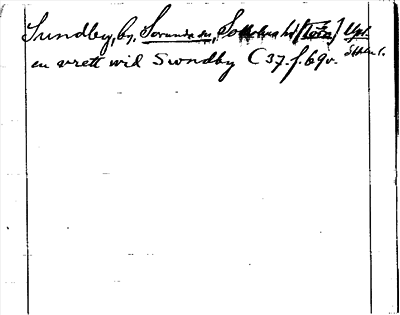 Sundby, by, Sorunda sn, Sotholms hd [Tören] Upl.
Sthlms l.
en wrett wid Swndby C 37. f. 69v.